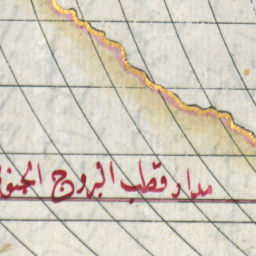 مدار قطب البروج الجنو